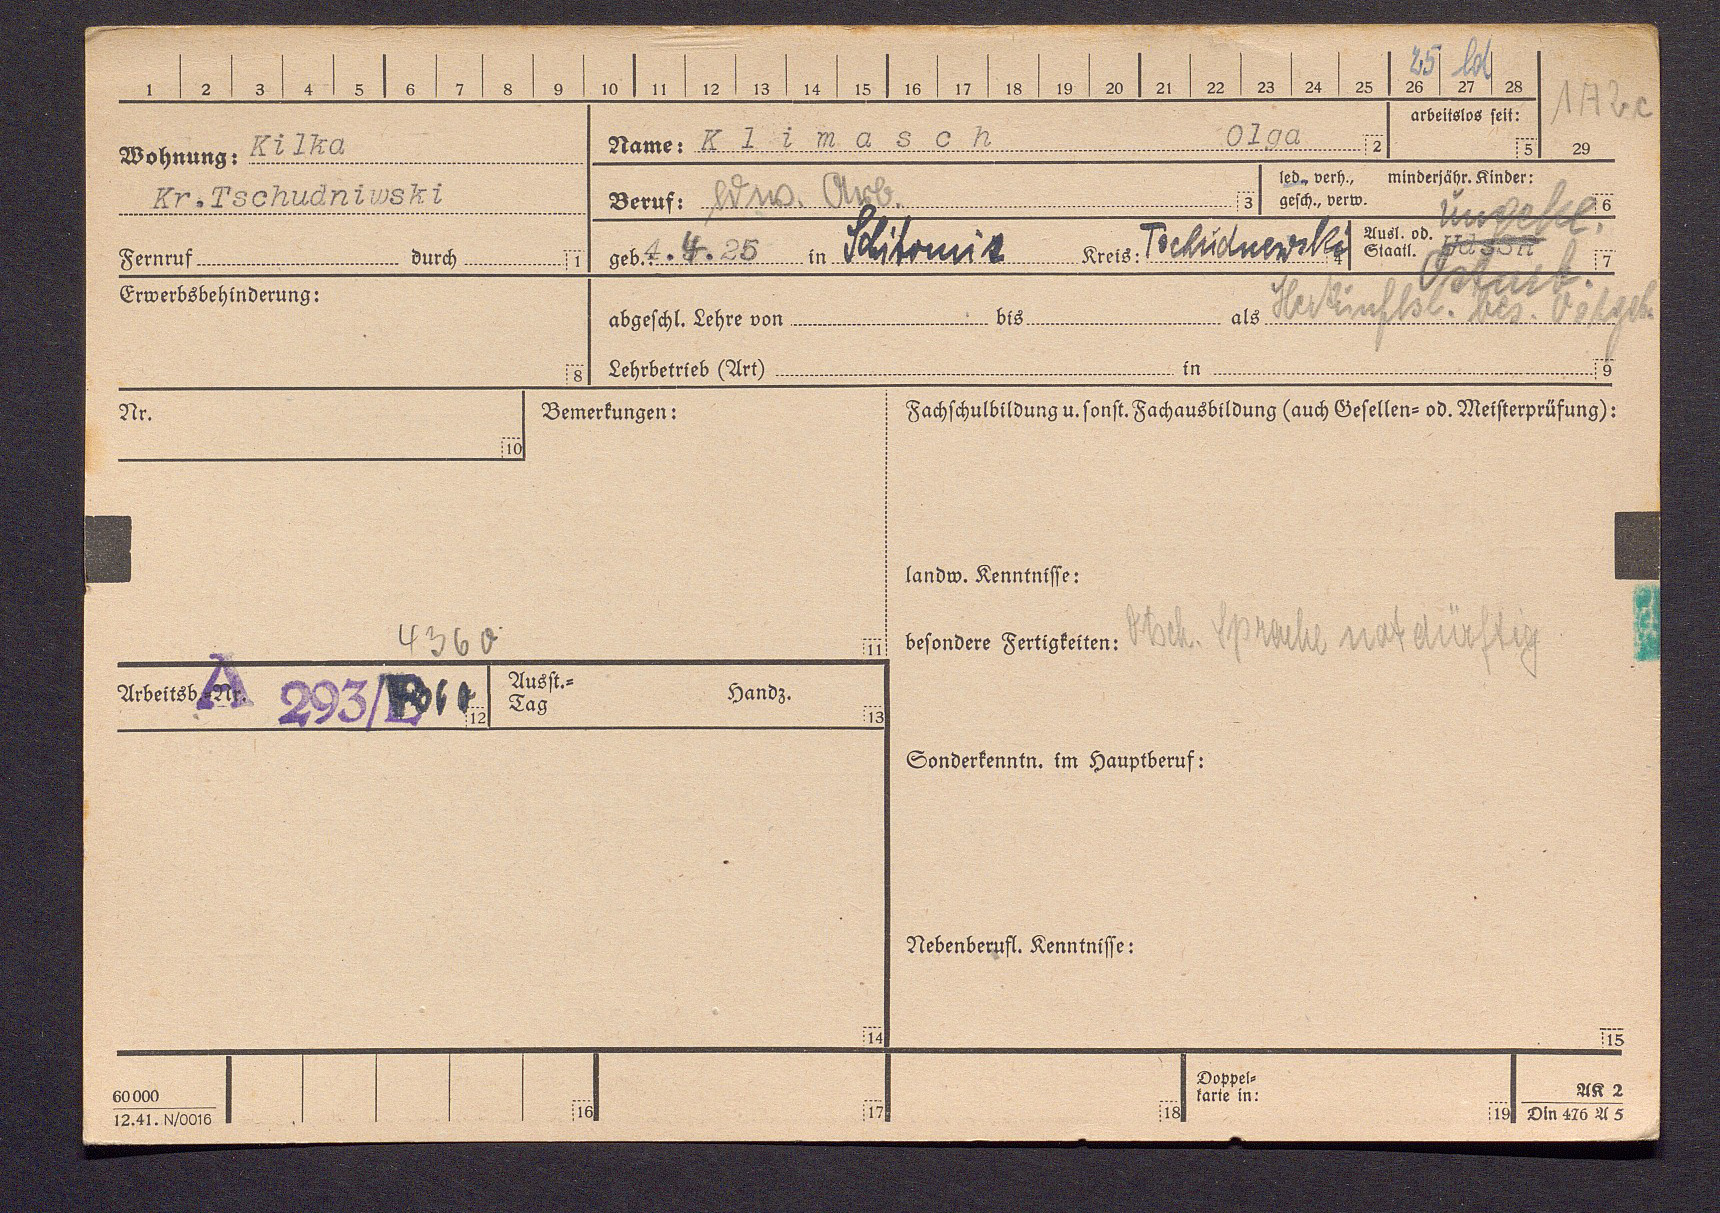 25 ld
1 2 3 4 5 6 7 8 9 10 11 12 13 14 15 16 17 18 19 20 21 22 23 24 25 26 27 28
1A2c
arbeitslos seit:
5 29
Wohnung: Kilka
Name: Klimasch Olga 2
Kr.Tschudniwski
Beruf: ldw. Arb. 3
led., verh., gesch., verw.
minderjähr. Kinder: 6
Fernruf durch 1
geb. 1.4.25 in Schitomir Kreis: Tschudnewski 4
Ausl. od. Staatl. ungekl. 7
Ostarb.
Erwerbsbehinderung:
8
Herkunftsl. bes. Ostgeb.
abgeschl. Lehre von bis als
Lehrbetrieb (Art) in 9
Nr.
10
Bemerkungen:
Fachschulbildung u. sonst. Fachausbildung (auch Gesellen- od. Meisterprüfung):
landw. Kenntnisse:
4360
11
besondere Fertigkeiten: dtsch. Sprache notdürftig
Arbeitsb.-Nr. A 293/ 12
Ausst.-Tag Handz. 13
Sonderkenntn. im Hauptberuf:
Nebenberufl. Kenntnisse:
14
15
60 000
12.41. N/0016
16
17
18
Doppel-
karte in:
19
AK 2
Din 476 A 5